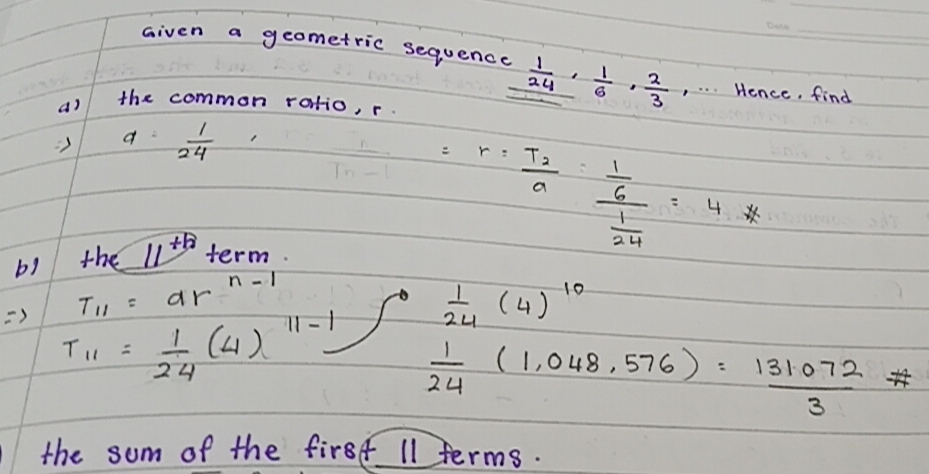 Given a geometric sequence 1/24, 1/6, 2/3, ... Hence, find
a) the common ratio, r.
=> a = 1/24 , = r = T₂/a = (1/6)/(1/24) = 4 #
b) the 11th term.
=> T₁₁ = ar^(n-1) 1/24 (4)^10
T₁₁ = 1/24 (4)^(11-1) 1/24 (1,048,576) = 131072/3 #
the sum of the first 11 terms.